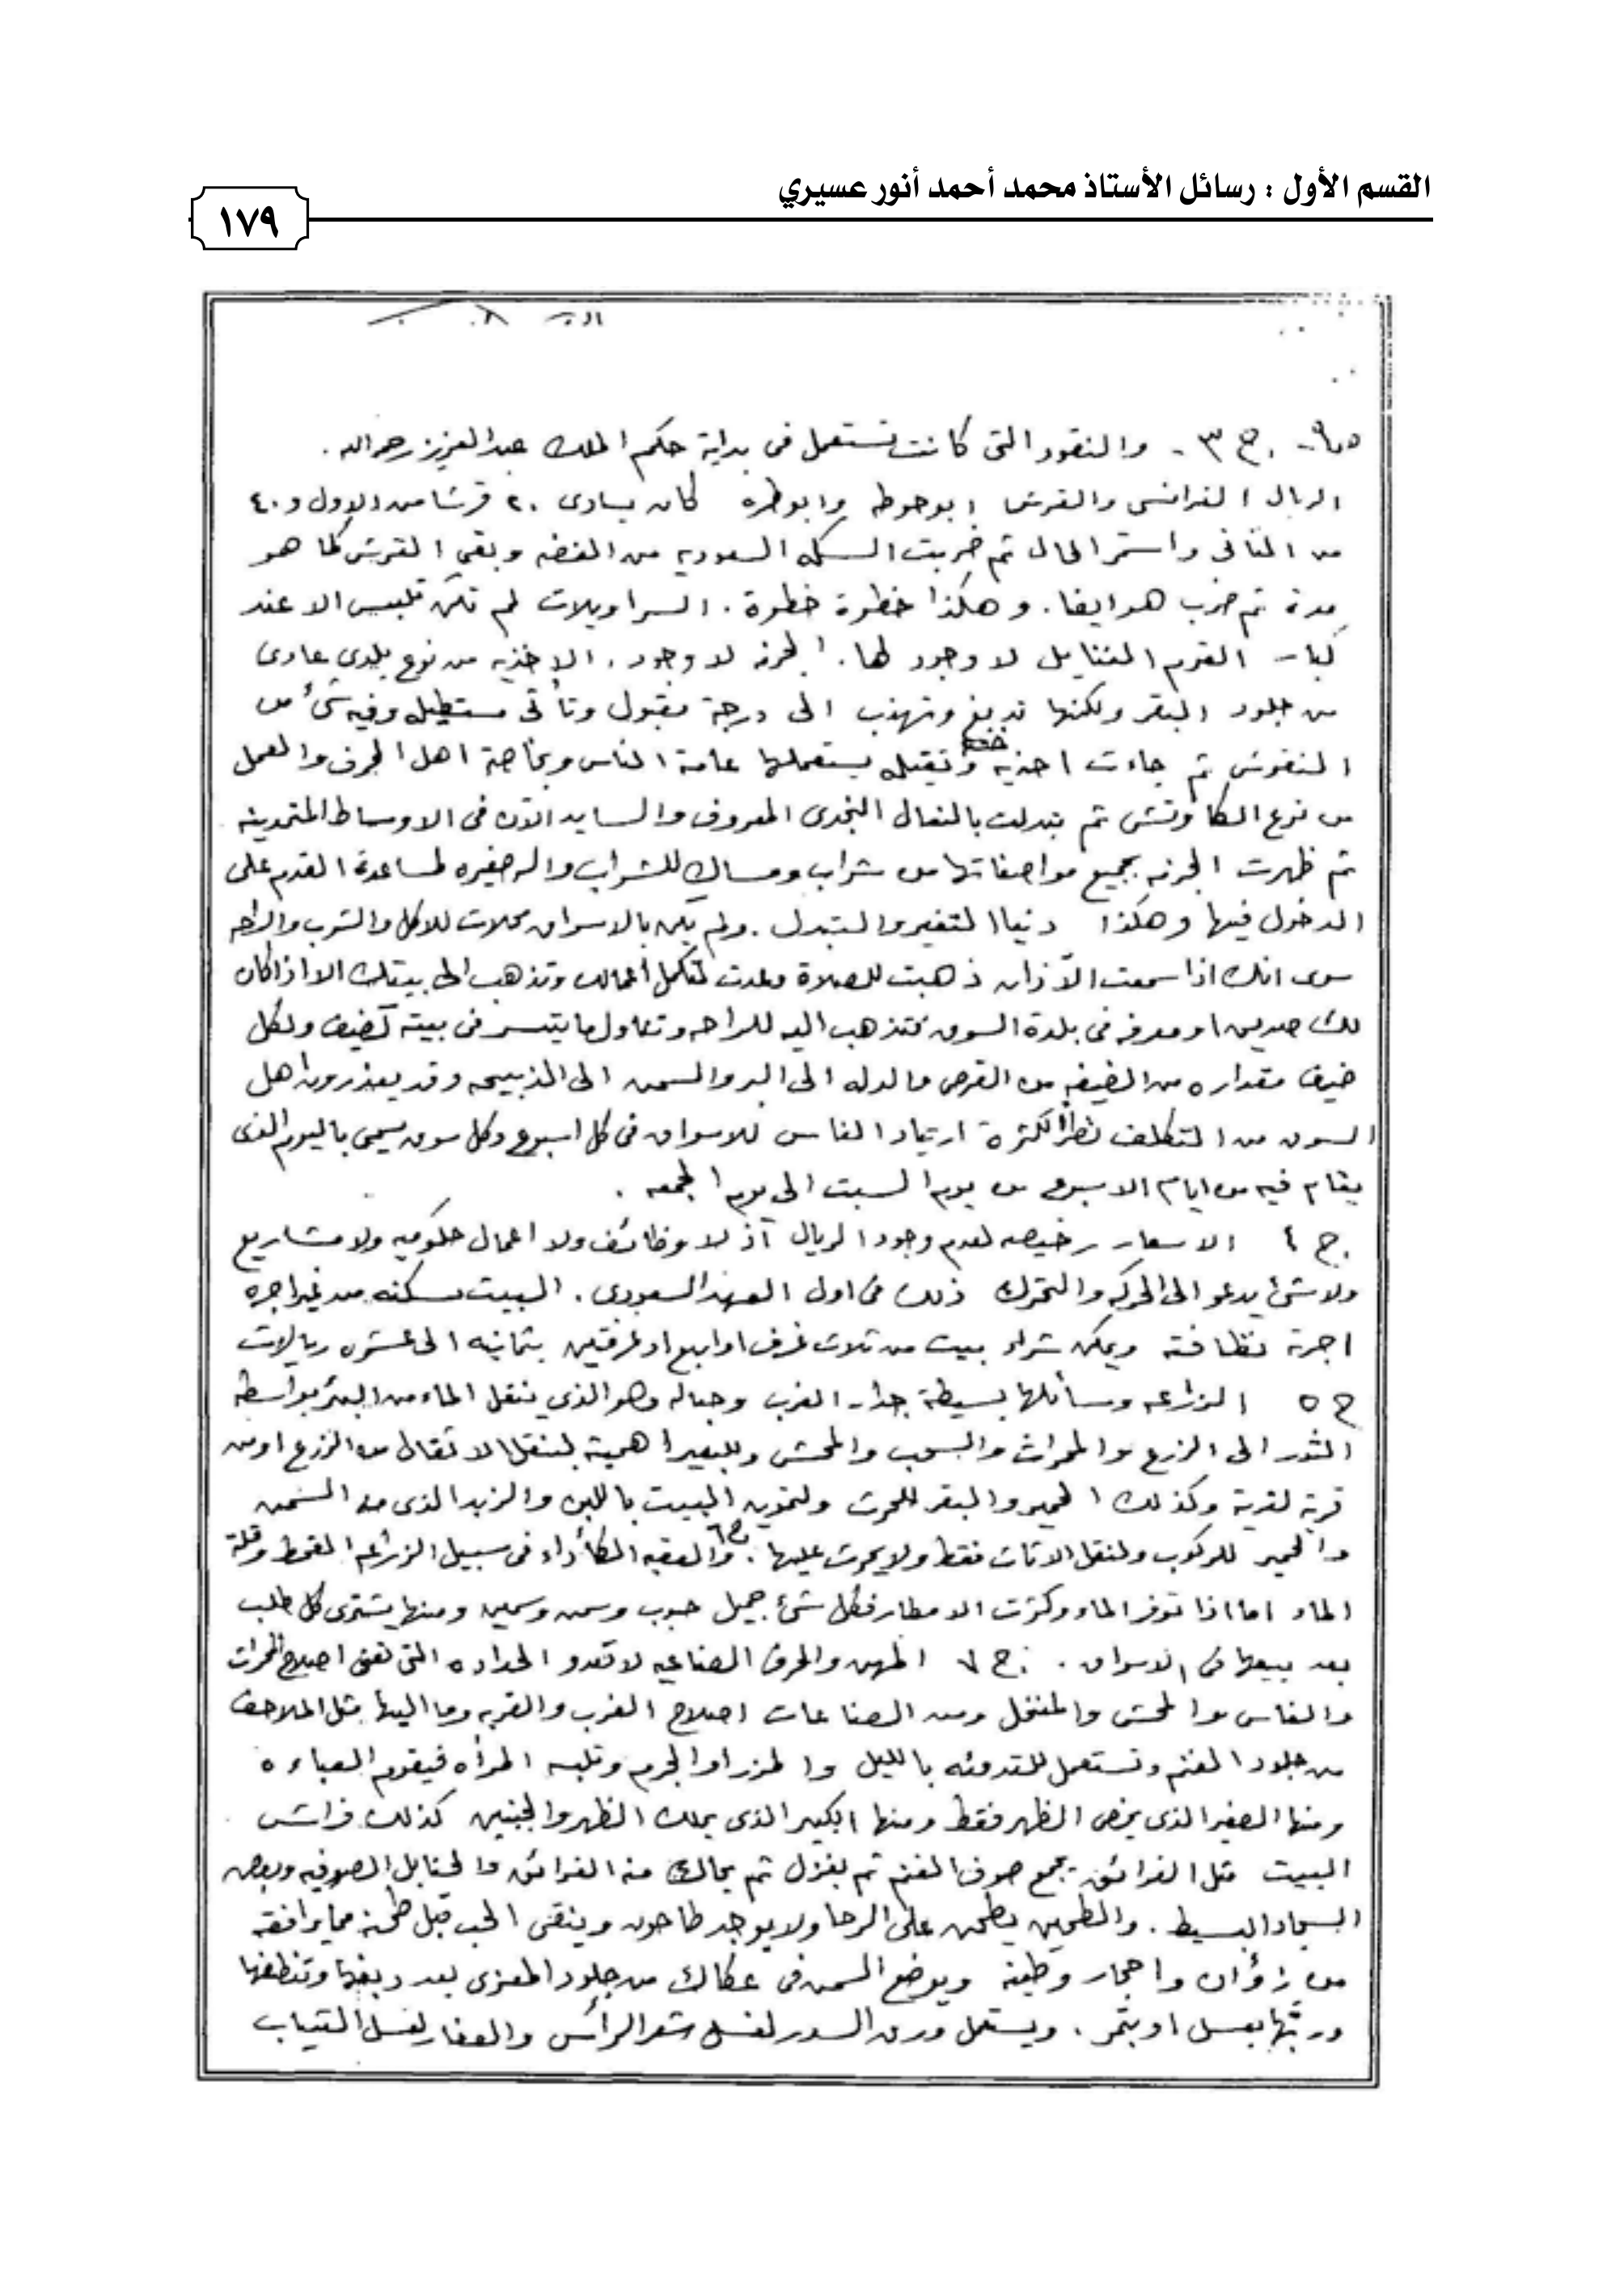 القسم الأول : رسائل الأستاذ محمد أحمد أنور عسيري
١٧٩
ج ٣ - والنقود التى كانت تستعمل فى بداية حكم الملك عبدالعزيز رحمه الله .
الريال الفرانسى والقرش ابوحوطه وابوطره كان يساوى ٢٠ قرشا من الاول و ٤٠
من الثانى واستمر الحال ثم ضربت السكه السعوديه من الفضه وبقى القرش كما هو
مدة ثم ضرب هو ايضا . وهكذا خطوة خطوة . السراويلات لم تكن تلبس الا عند
كبار القوم الفنايل لا وجود لها . الجزمه لا وجود . الاحذيه من نوع بلدي عادى
من جلود البقر ولكنها تدبغ وتهذب الى درجة مقبول وتأتى مستطيله وفيه شئ من
النقوش ثم جاءت احذيه وثقيله يستعملها عامة الناس وبخاصة اهل الحرف والعمل
من نوع الكاوتش ثم تبدلت بالنعال النجدى المعروف والسايد الآن فى الاوساط المتمدينه
ثم ظهرت الجزمه بجميع مواصفاتها من شراب ومساك للشراب واله صغيره لمساعدة القدم على
الدخول فيها وهكذا دنيا التغير والتبدل . ولم يكن بالاسواق محلات للاكل والشرب والراحه
سوى انك اذا سمعت الآذان ذهبت للصلاة وعدت لتكمل أعمالك وتذهب الى بيتك الا اذا كان
لك صديق او معرفه فى بلدة السوق فتذهب اليه للراحه وتناول ما يتيسر فى بيته كضيف ولكل
ضيف مقداره من الضيفه من القرص فالدله الى البر والسمن الى الذبيحه وقد يعذرون اهل
السوق من التكلف نظراً لكثرة ارتياد الناس للاسواق فى كل اسبوع وكل سوق يسمى باليوم الذى
يقام فيه من ايام الاسبوع من يوم السبت الى يوم الجمعه .
ج ٤ الاسعار رخيصه لعدم وجود الريال اذ لا وظائف ولا اعمال حكوميه ولا مشاريع
ولا شئ يدعو الى الحركه والتحرك ذلك فى اول العهد السعودى . البيت تسكنه من غير اجره
اجرته نظافته ويمكن شراء بيت من ثلاث غرف او اربع او غرفتين بثمانيه الى عشره ريالات
ج ٥ الزراعه وسائلها بسيطة الغرب وحباله وهو الذي ينقل الماء من البئر بواسطه
الثور الى الزرع والمحراث والسحب والمحش وللبعير اهمية لنقل الاثقال من الزرع او من
قرية لقرية وكذلك الحمير والبقر للحرث ولتموين البيت باللبن والزبد الذى منه السمن
والحمير للركوب ولنقل الاثاث فقط ولا يحرث عليها . ج٦ والعقبه الكأداء فى سبيل الزراعه القحط وقلة
الماء اما اذا توفر الماء وكثرت الامطار فكل شئ جميل حبوب وسمن وسمين ومنها يشترى كل طلب
بعد بيعها فى الاسواق . ج ٧ المهن والحرف الصناعيه لا تعدو الحداده التى تعنى اصلاح المحراث
والفاس والمحش والمنخل ومن الصناعات اصلاح الغرب والقربه وما اليها مثل الملاحف
من جلود الغنم وتستعمل للتدفئه بالليل والمزر او الجرم وتلبسه المرأه فيقوم العباءه
ومنها الصغير الذى يخص الظهر فقط ومنها الكبير الذى يملك الظهر والجنبين كذلك فراش
البيت مثل الفرائق يجمع صوف الغنم ثم يغزل ثم يحاك منه الفرائق والحنابل الصوفيه وبعض
السجاد البسيط . والطحين يطحن على الرحا ولا يوجد طاحون وينقى الحب قبل طحنه مما يرافقه
من زؤان واحجار وطينه ويوضع السمن فى عكاك من جلود المعزى بعد دبغها وتنظفها
وربّها بعسل او بتمر . ويستعمل ورق السدر لغسل شعر الرأس والعفار لغسل الثياب